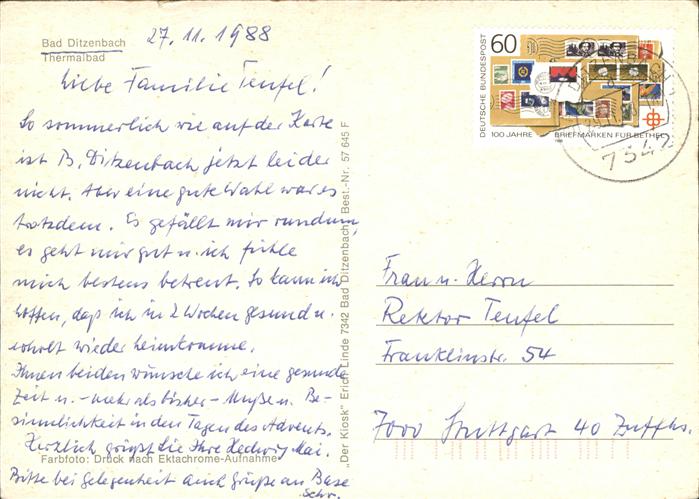 Bad Ditzenbach
Thermalbad
27.11.1988
Liebe Familie Teufel!
So sommerlich wie auf der Karte
ist B. Ditzenbach jetzt leider
nicht. Aber eine gute Wahl war es
trotzdem. Es gefällt mir rundum,
es geht mir gut u. ich fühle
mich bestens betreut. So kann ich
hoffen, daß ich in 2 Wochen gesund u.
erholt wieder heimkomme.
Ihnen beiden wünsche ich eine gesunde
Zeit u. - mehr als bisher - Muße u. Be-
sinnlichkeit in den Tagen des Advents.
Herzlich grüßt die Ihre Hedwig Mai.
Farbfoto: Druck nach Ektachrome-Aufnahme
Bitte bei Gelegenheit auch Grüße an Base
Schr.
„Der Kiosk" Erich Linde 7342 Bad Ditzenbach Best.-Nr. 57 645 F
60
DEUTSCHE BUNDESPOST
100 JAHRE BRIEFMARKEN FÜR BETHEL
Frau u. Herrn
Rektor Teufel
Franklinstr. 54
7000 Stuttgart 40 Zuffhs.